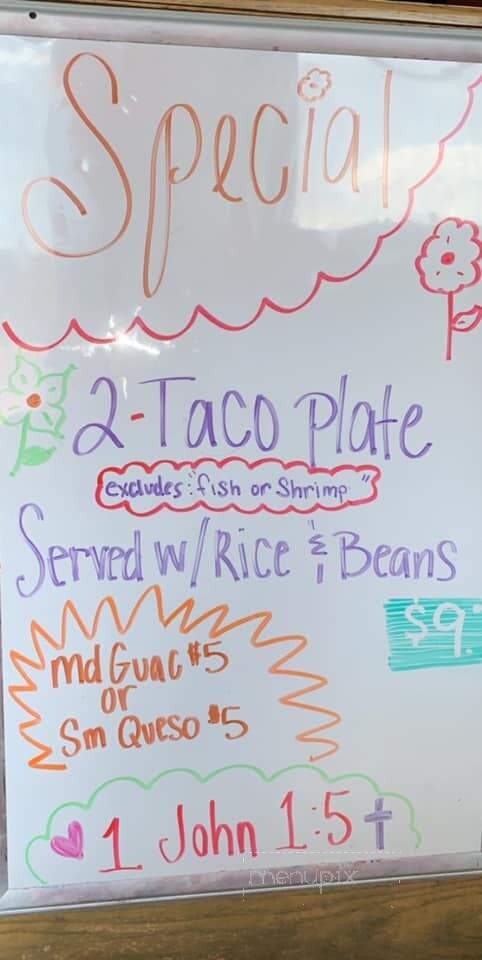 Special
2-Taco Plate
excludes: "fish or Shrimp."
Served w/Rice & Beans
$9.
md Guac #5
or
Sm Queso $5
1 John 1:5
menupix